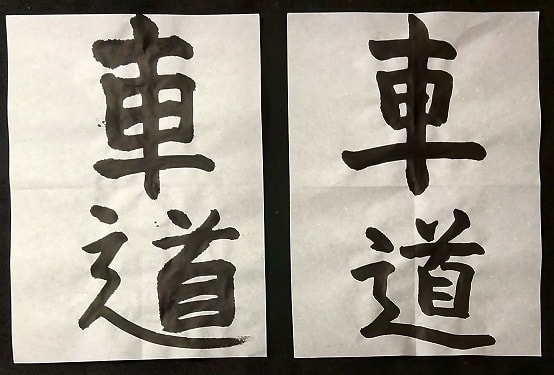 車道
車道